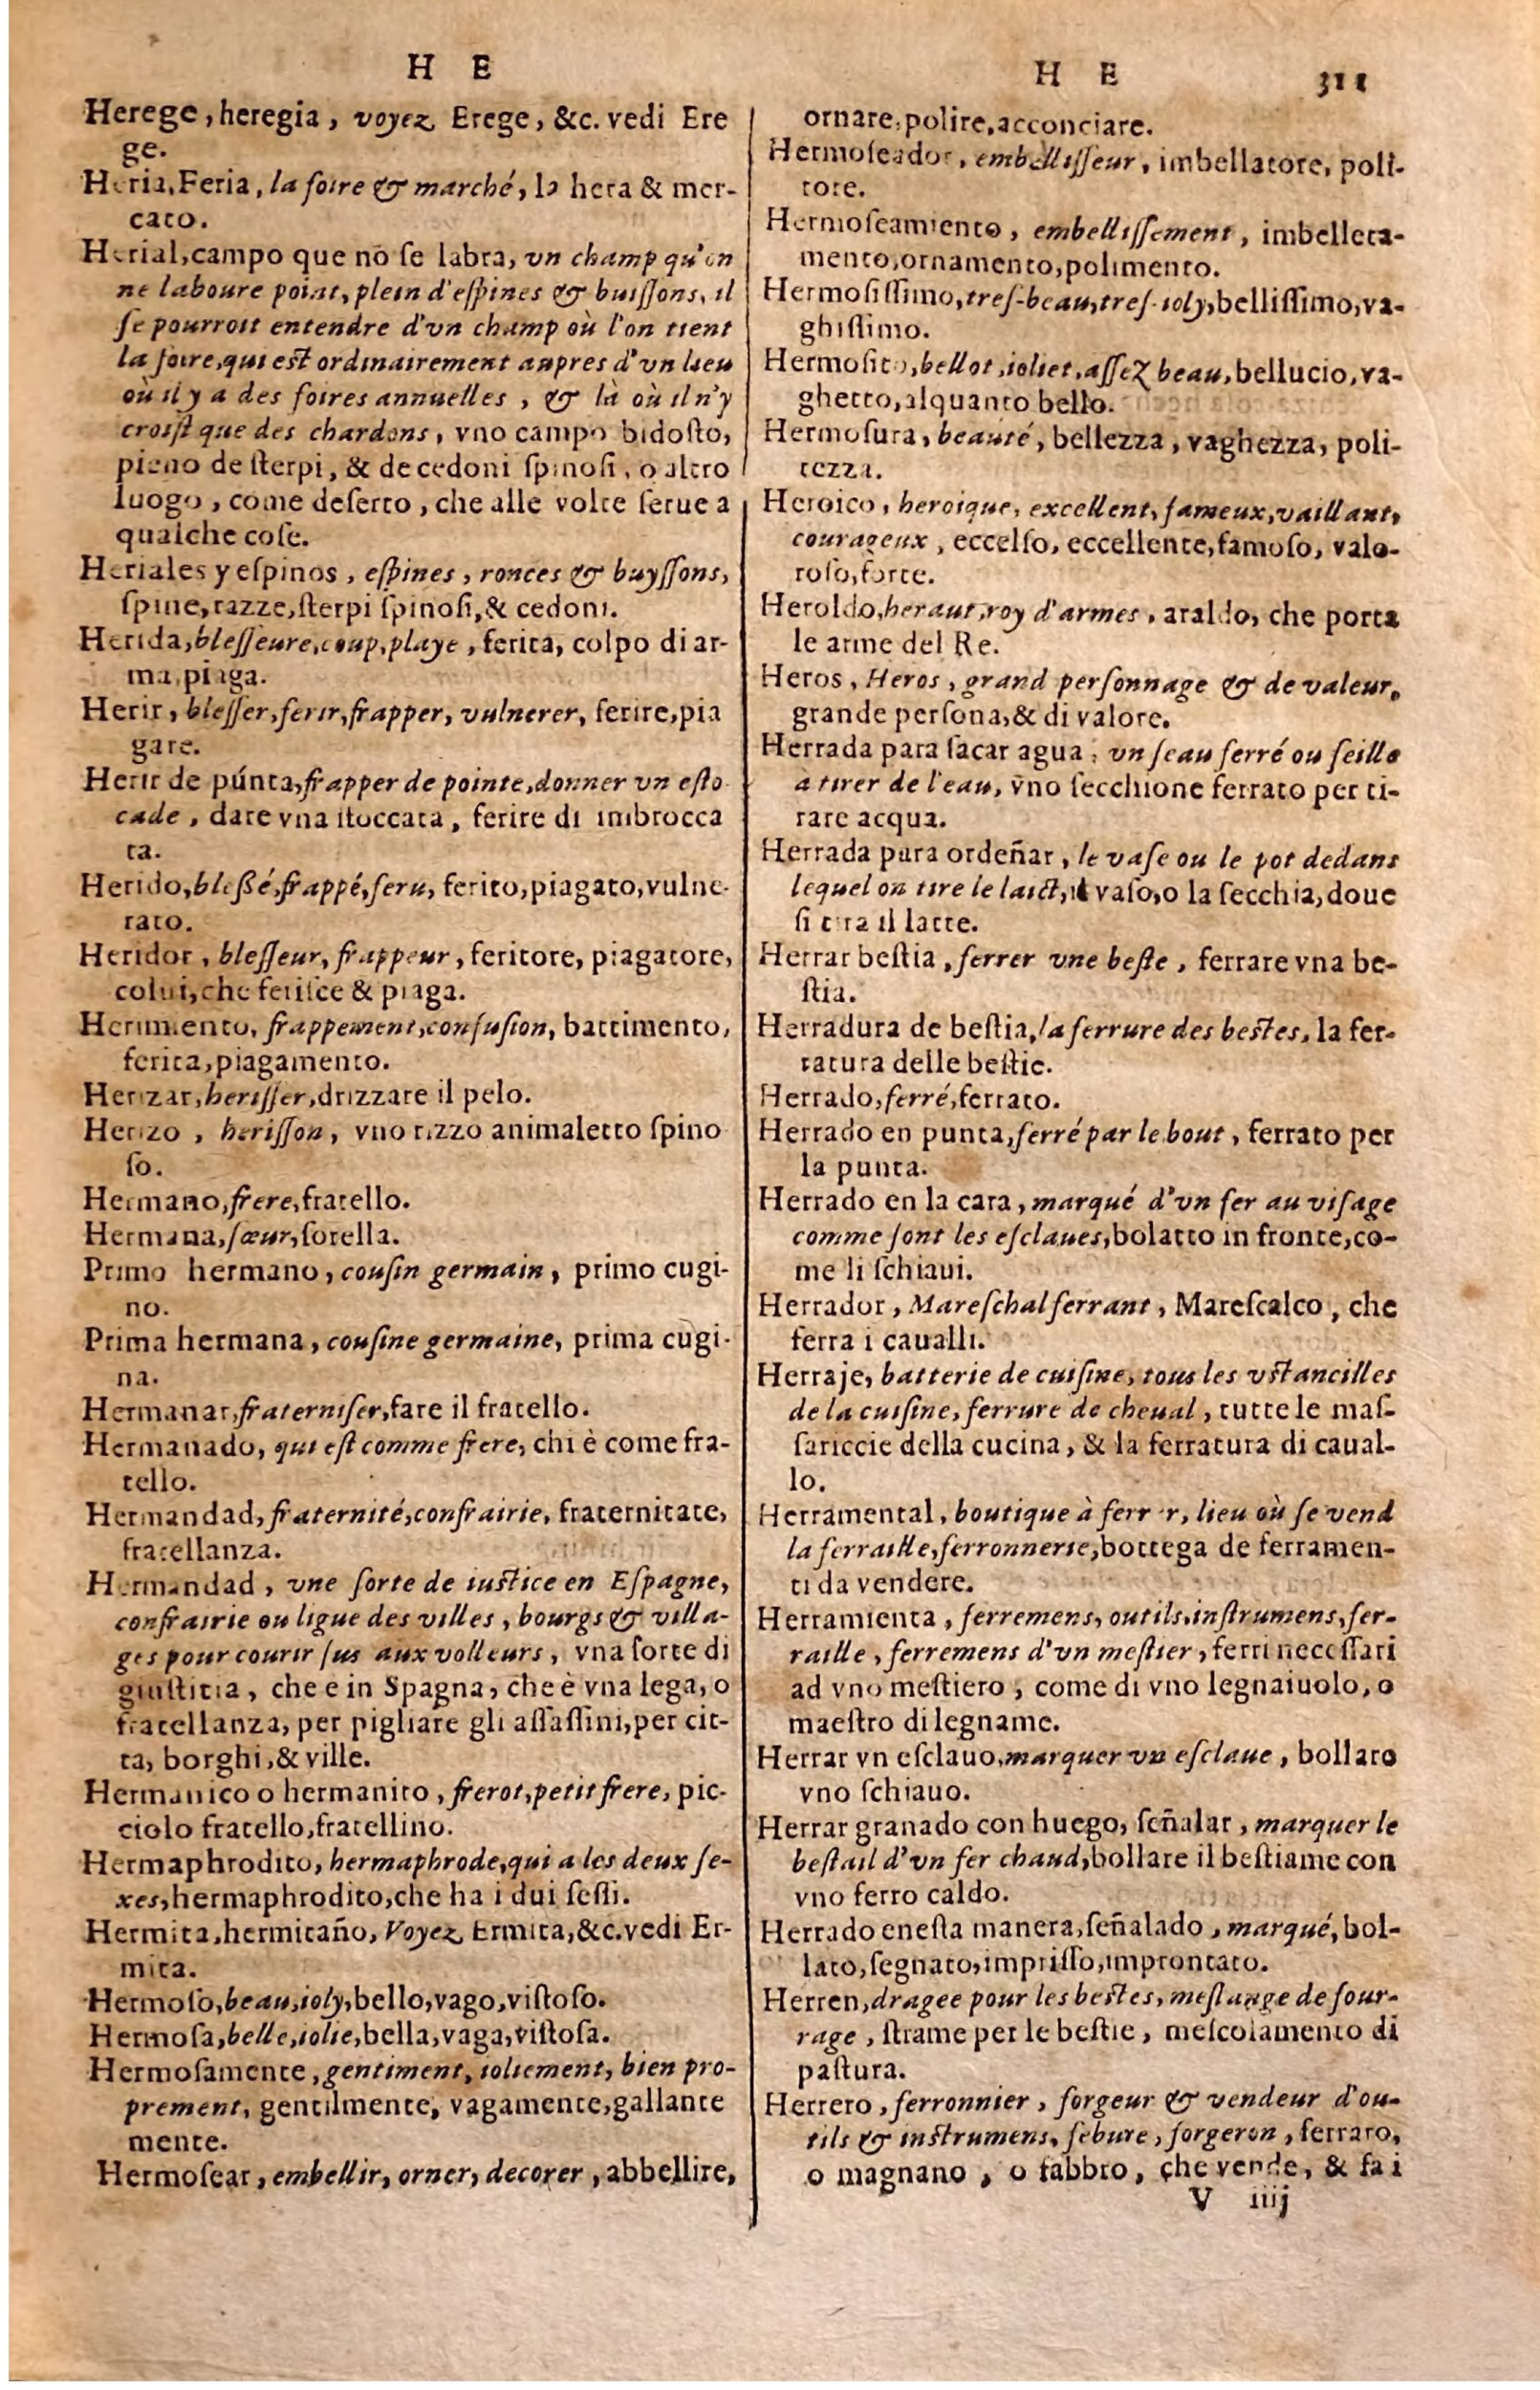 H E
Herege, heregia, voyez Erege, &c. vedi Ere
ge.
Heria, Feria, la foire & marché, la hera & mer-
cato.
Herial, campo que nõ ſe labra, vn champ qu'on
ne laboure point, plein d'eſpines & buiſſons, il
ſe pourroit entendre d'vn champ où l'on tient
la foire, qui est ordinairement aupres d'vn lieu
où il y a des foires annuelles, & là où il n'y
croiſt que des chardons, vno campo bidoſto,
pieno de ſterpi, & de cedoni ſpinoſi, o altro
luogo, come deſerto, che alle volte ſerue a
qualche coſe.
Heriales y eſpinos, eſpines, ronces & buyſſons,
ſpine, razze, ſterpi ſpinoſi, & cedoni.
Herida, bleſſeure, coup, playe, ferita, colpo di ar-
ma, piaga.
Herir, bleſſer, ferir, frapper, vulnerer, ferire, pia
gare.
Herir de púnta, frapper de pointe, donner vn eſto
cade, dare vna ſtoccata, ferire di imbrocca
ta.
Herido, bleßé, frappé, feru, ferito, piagato, vulne-
rato.
Heridor, bleſſeur, frappeur, feritore, piagatore,
colui, che feriſce & piaga.
Herimiento, frappement, confuſion, battimento,
ferita, piagamento.
Herizar, heriſſer, drizzare il pelo.
Herizo, heriſſon, vno rizzo animaletto ſpino
ſo.
Hermano, frere, fratello.
Hermana, ſœur, ſorella.
Primo hermano, couſin germain, primo cugi-
no.
Prima hermana, couſine germaine, prima cugi-
na.
Hermanar, fraterniſer, fare il fratello.
Hermanado, qui eſt comme frere, chi è come fra-
tello.
Hermandad, fraternité, confrairie, fraternitate,
fratellanza.
Hermandad, vne ſorte de iustice en Eſpagne,
confrairie ou ligue des villes, bourgs & villa-
ges pour courir ſus aux volleurs, vna ſorte di
giuſtitia, che e in Spagna, che è vna lega, o
fratellanza, per pigliare gli aſſaſſini, per cit-
ta, borghi, & ville.
Hermanico o hermanito, frerot, petit frere, pic-
ciolo fratello, fratellino.
Hermaphrodito, hermaphrode, qui a les deux ſe-
xes, hermaphrodito, che ha i dui ſeſſi.
Hermita, hermitaño, Voyez Ermita, &c. vedi Er-
mita.
Hermoſo, beau, ioly, bello, vago, viſtoſo.
Hermoſa, belle, iolie, bella, vaga, viſtoſa.
Hermoſamente, gentiment, ioliement, bien pro-
prement, gentilmente, vagamente, gallante
mente.
Hermoſear, embellir, orner, decorer, abbellire,
H E 311
ornare, polire, acconciare.
Hermoſeador, embelliſſeur, imbellatore, poli-
tore.
Hermoſeamiento, embelliſſement, imbelleta-
mento, ornamento, polimento.
Hermoſiſſimo, treſ-beau, treſ-ioly, belliſſimo, va-
ghiſſimo.
Hermoſito, bellot, ioliet, aſſez beau, bellucio, va-
ghetto, alquanto bello.
Hermoſura, beauté, bellezza, vaghezza, poli-
tezza.
Heroico, heroique, excellent, fameux, vaillant,
courageux, eccelſo, eccellente, famoſo, valo-
roſo, forte.
Heroldo, heraut, roy d'armes, araldo, che porta
le arme del Re.
Heros, Heros, grand perſonnage & de valeur,
grande perſona, & di valore.
Herrada para ſacar agua, vn ſeau ferré ou ſeille
à tirer de l'eau, vno ſecchione ferrato per ti-
rare acqua.
Herrada para ordeñar, le vaſe ou le pot dedans
lequel on tire le laict, il vaſo, o la ſecchia, doue
ſi tira il latte.
Herrar beſtia, ferrer vne beſte, ferrare vna be-
ſtia.
Herradura de beſtia, la ferrure des bestes, la fer-
ratura delle beſtie.
Herrado, ferré, ferrato.
Herrado en punta, ferré par le bout, ferrato per
la punta.
Herrado en la cara, marqué d'vn fer au viſage
comme ſont les eſclaues, bolatto in fronte, co-
me li ſchiaui.
Herrador, Mareſchal ferrant, Mareſcalco, che
ferra i caualli.
Herraje, batterie de cuiſine, tous les vstancilles
de la cuiſine, ferrure de cheual, tutte le maſ-
ſariccie della cucina, & la ferratura di caual-
lo.
Herramental, boutique à ferrer, lieu où ſe vend
la ferraille, ferronnerie, bottega de ferramen-
ti da vendere.
Herramienta, ferremens, outils, inſtrumens, fer-
raille, ferremens d'vn meſtier, ferri neceſſari
ad vno meſtiero, come di vno legnaiuolo, o
maeſtro di legname.
Herrar vn eſclauo, marquer vn eſclaue, bollaro
vno ſchiauo.
Herrar granado con huego, ſeñalar, marquer le
beſtail d'vn fer chaud, bollare il beſtiame con
vno ferro caldo.
Herrado eneſta manera, ſeñalado, marqué, bol-
lato, ſegnato, impriſſo, improntato.
Herren, dragee pour les bestes, meſlange de four-
rage, ſtrame per le beſtie, meſcolamento di
paſtura.
Herrero, ferronnier, forgeur & vendeur d'ou-
tils & instrumens, febure, forgeron, ferraro,
o magnano, o fabbro, che vende, & fa i
V iiij